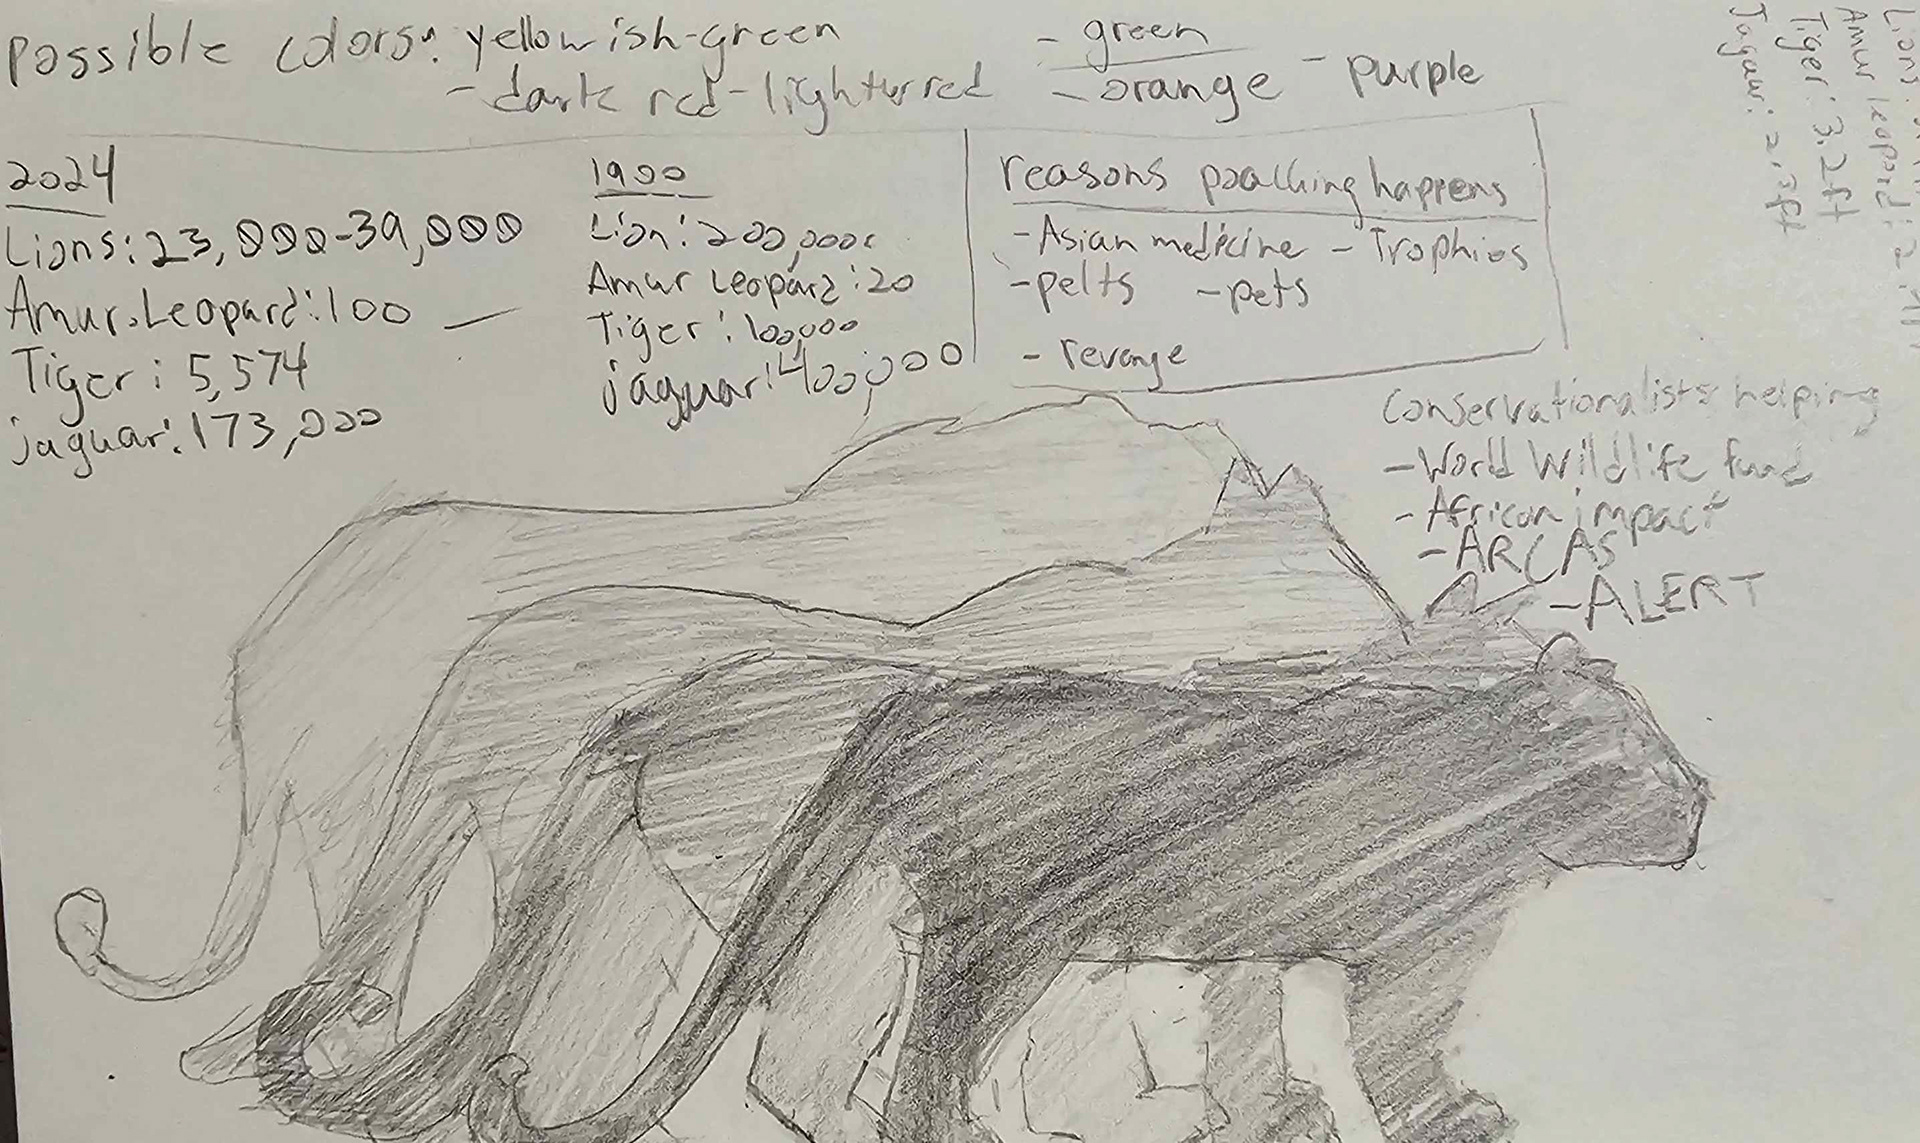 possible colors: yellowish-green - green
- dark red-lighter red - orange - purple
2024
Lions: 23,000-39,000
Amur.Leopard: 100 —
Tiger: 5,574
jaguar: 173,000
1900
Lion: 200,000
Amur Leopard: 20
Tiger: 100,000
jaguar: 400,000
reasons poaching happens
- Asian medicine - Trophies
- pelts - pets
- revenge
Conservationalists helping
- World Wildlife fund
- African impact
- ARCAS
- ALERT
Lions:
Amur leopard: 2.
Tiger: 3.2ft
Jaguar: 2.3ft